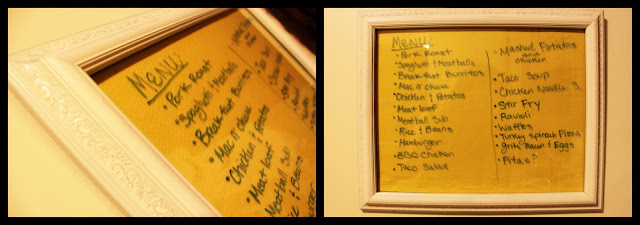 MENU:
• Pork Roast
Spaghetti & Meatballs
• Breakfast Burritos
• Mac n' cheese
Chicken & Potatoes
• Meat loaf
Meatball Sub
Rice &
MENU:
• Pork Roast
• Spaghetti & Meatballs
• Breakfast Burritos
• Mac n' cheese
• Chicken & Potatoes
• Meat loaf
• Meatball Sub
• Rice & Beans
• Hamburger
• BBQ Chicken
• Taco Salad
• Mashed Potatoes
and
chicken
• Taco Soup
• Chicken Noodle
• Stir Fry
• Ravioli
• Waffles
• Turkey spinach Pizza
• grits Bacon & Eggs
• Pitas